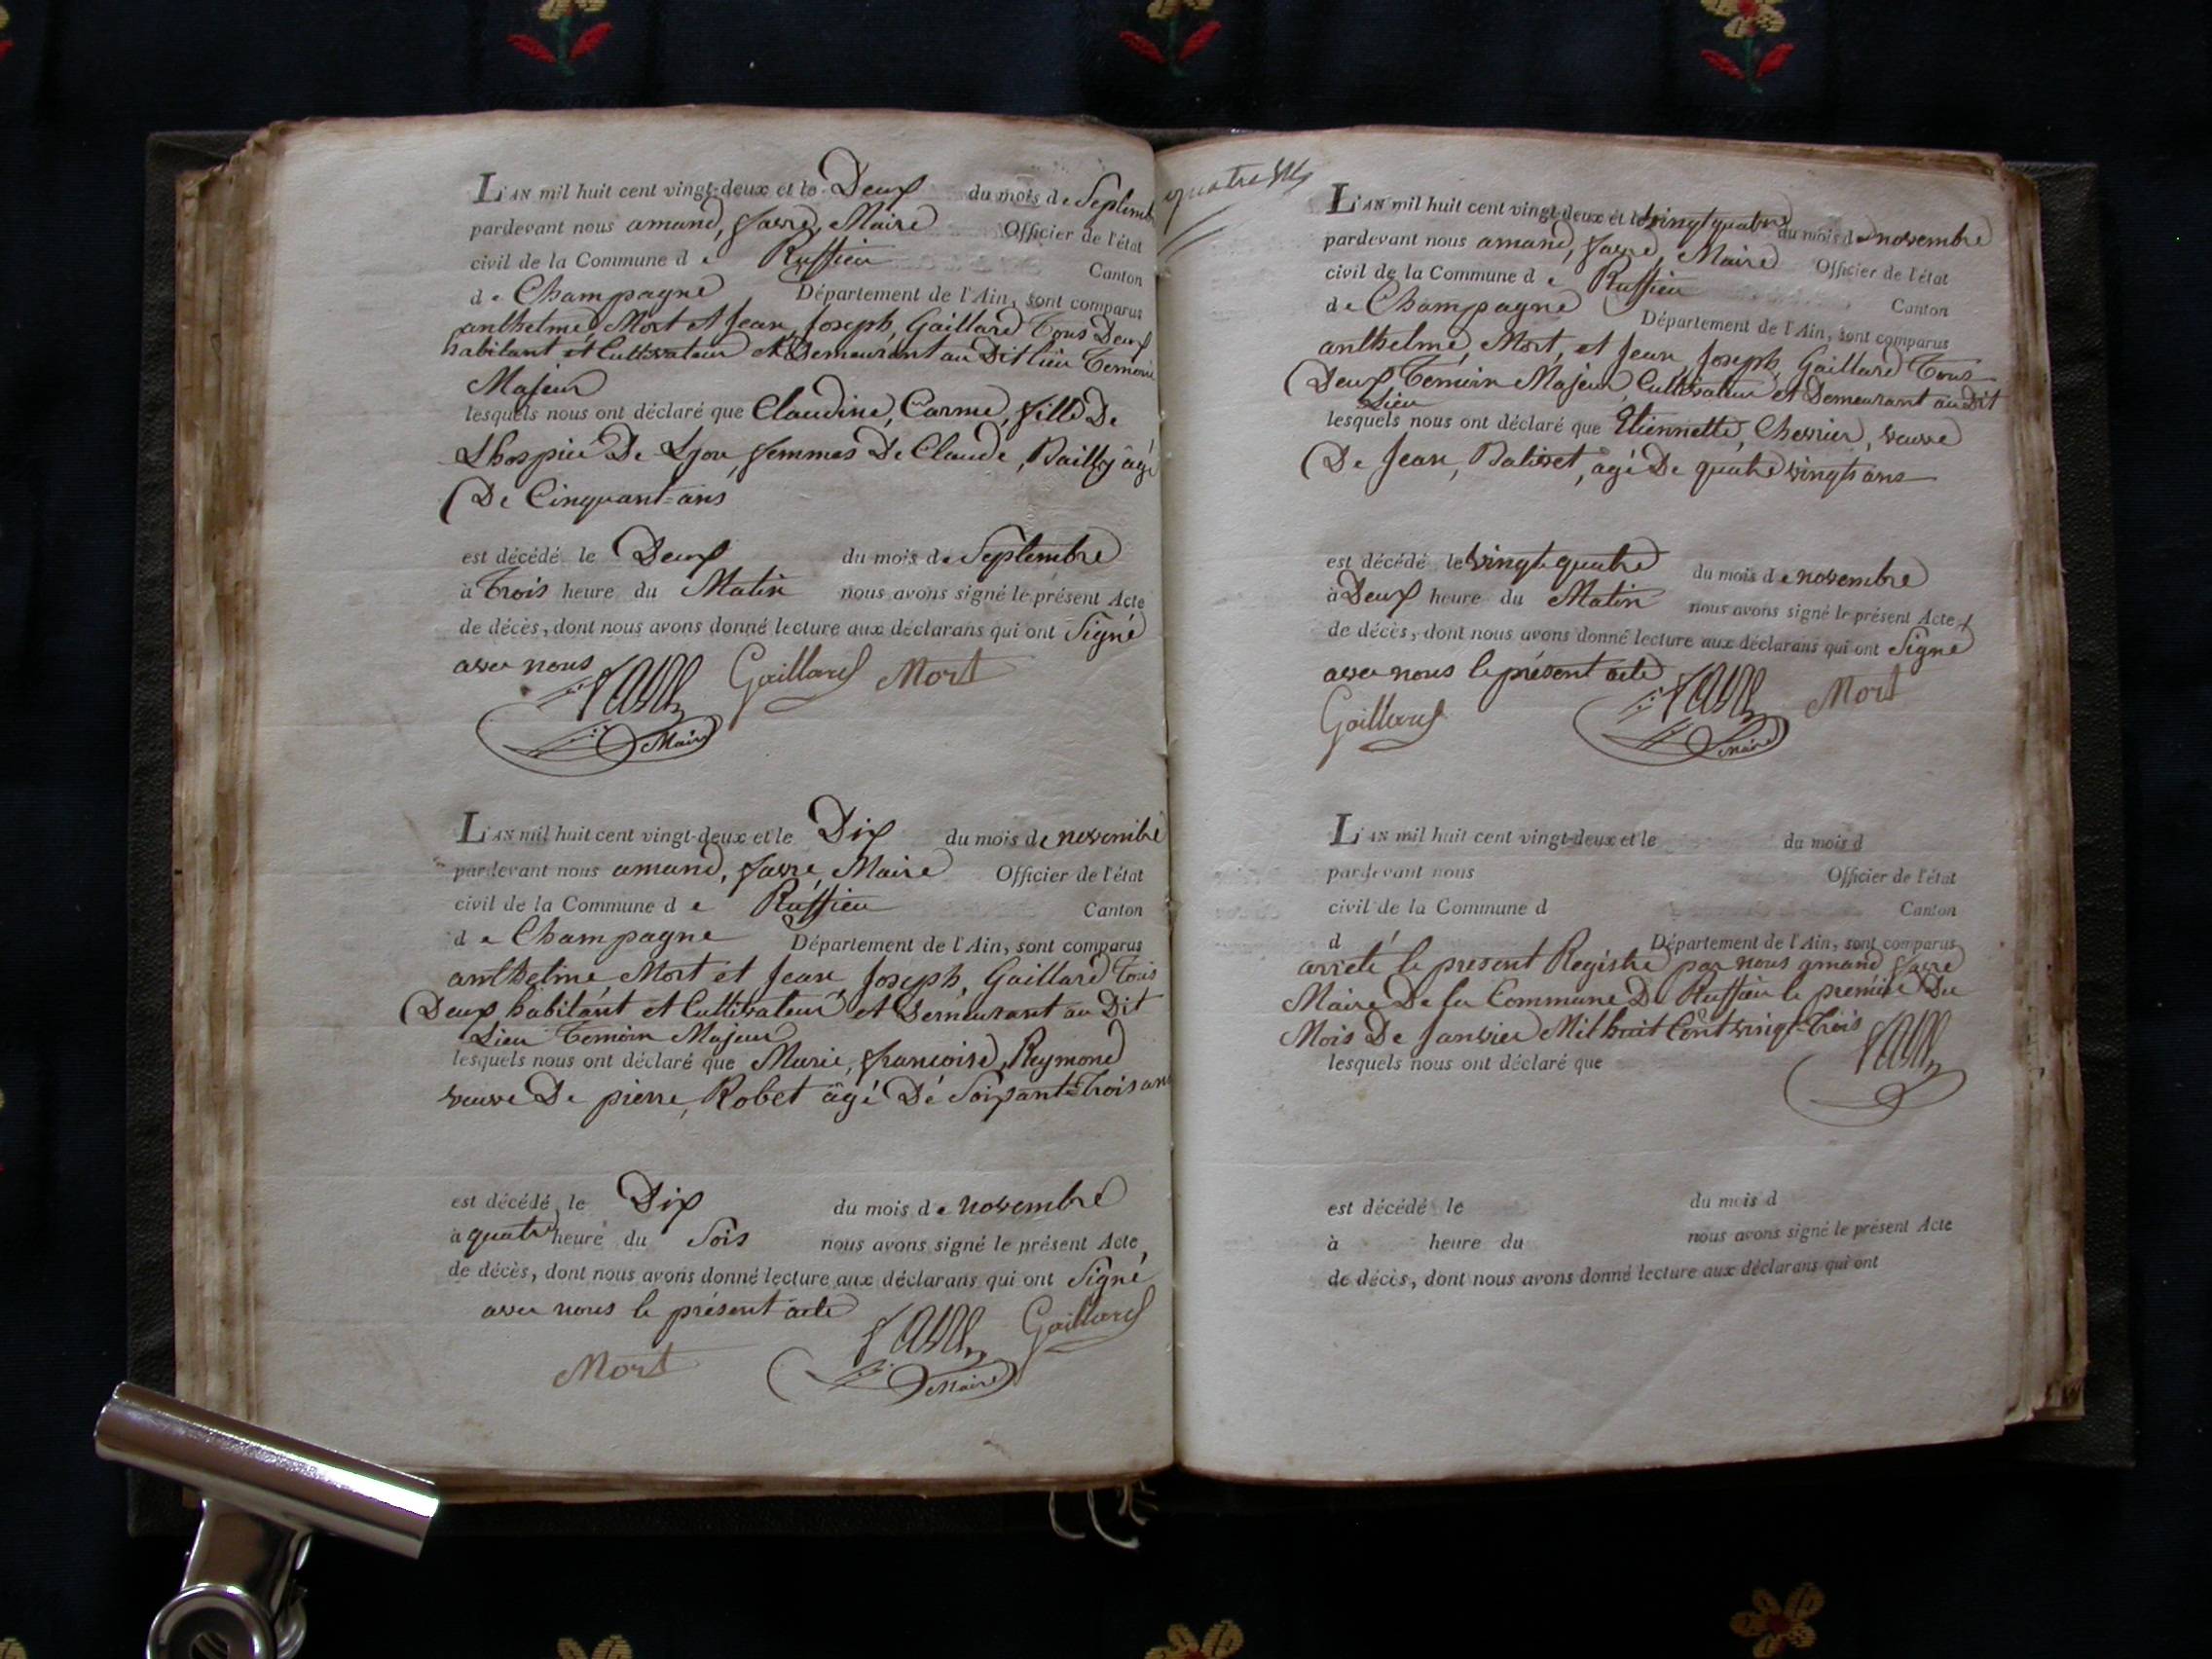 L'AN mil huit cent vingt-deux et le Deux du mois de Septemb
pardevant nous amand, favre, Maire Officier de l'état
civil de la Commune d e Ruffieu Canton
d e Champagne Département de l'Ain, sont comparus
anthelme, Mort et Jean, Joseph, Gaillard Tous Deux
habitant et Cultivateur et Demeurant au Dit lieu Temoin
Majeur
lesquels nous ont déclaré que Claudine, Carme, fille De
Lhospice De Lyon femmes De Claude, Bailly âgé
De Cinquant=ans
est décédé le Deux du mois de Septembre
à Trois heure du Matin nous avons signé le présent Acte
de décès, dont nous avons donné lecture aux déclarans qui ont Signé
avec nous
favre Gaillard Mort
Maire
L'AN mil huit cent vingt-deux et le Dix du mois de novembre
pardevant nous amand, favre, Maire Officier de l'état
civil de la Commune d e Ruffieu Canton
d e Champagne Département de l'Ain, sont comparus
anthelme, Mort et Jean, Joseph, Gaillard Tous
Deux habitant et Cultivateur et Demeurant au Dit
Lieu Temoin Majeur
lesquels nous ont déclaré que Marie, francoise, Reymond
veuve De pierre, Robet âgé Dé Soixante=Trois ans
est décédé le Dix du mois de novembre
à quatre heure du Soir nous avons signé le présent Acte,
de décès, dont nous avons donné lecture aux déclarans qui ont Signé
avec nous le présent acte
favre Gaillard
Mort Maire
quatre
L'AN mil huit cent vingt-deux et le vingt quatre du mois de novembre
pardevant nous amand, favre, Maire Officier de l'état
civil de la Commune d e Ruffieu
de Champagne Canton
Département de l'Ain, sont comparus
anthelme, Mort, et Jean, Joseph, Gaillard Tous
Deux Temoin Majeur, Cultivateur et Demeurant au Dit
Lieu
lesquels nous ont déclaré que Etiennette, Chervier, veuve
De Jean, Balivet, âgé De quatre vingts ans
est décédé le vingt quatre du mois de novembre
à Deux heure du Matin nous avons signé le présent Acte
de décès, dont nous avons donné lecture aux déclarans qui ont Signé
avec nous le présent acte
Gaillard favre Mort
Maire
L'AN mil huit cent vingt-deux et le du mois d
pardevant nous Officier de l'état
civil de la Commune d Canton
d Département de l'Ain, sont comparus
arrété le present Registre par nous amand favre
Maire De la Commune De Ruffieu le premier Du
Mois De Janvier Mil huit Cent vingt-Trois
favre
lesquels nous ont déclaré que
est décédé le du mois d
à heure du nous avons signé le présent Acte
de décès, dont nous avons donné lecture aux déclarans qui ont